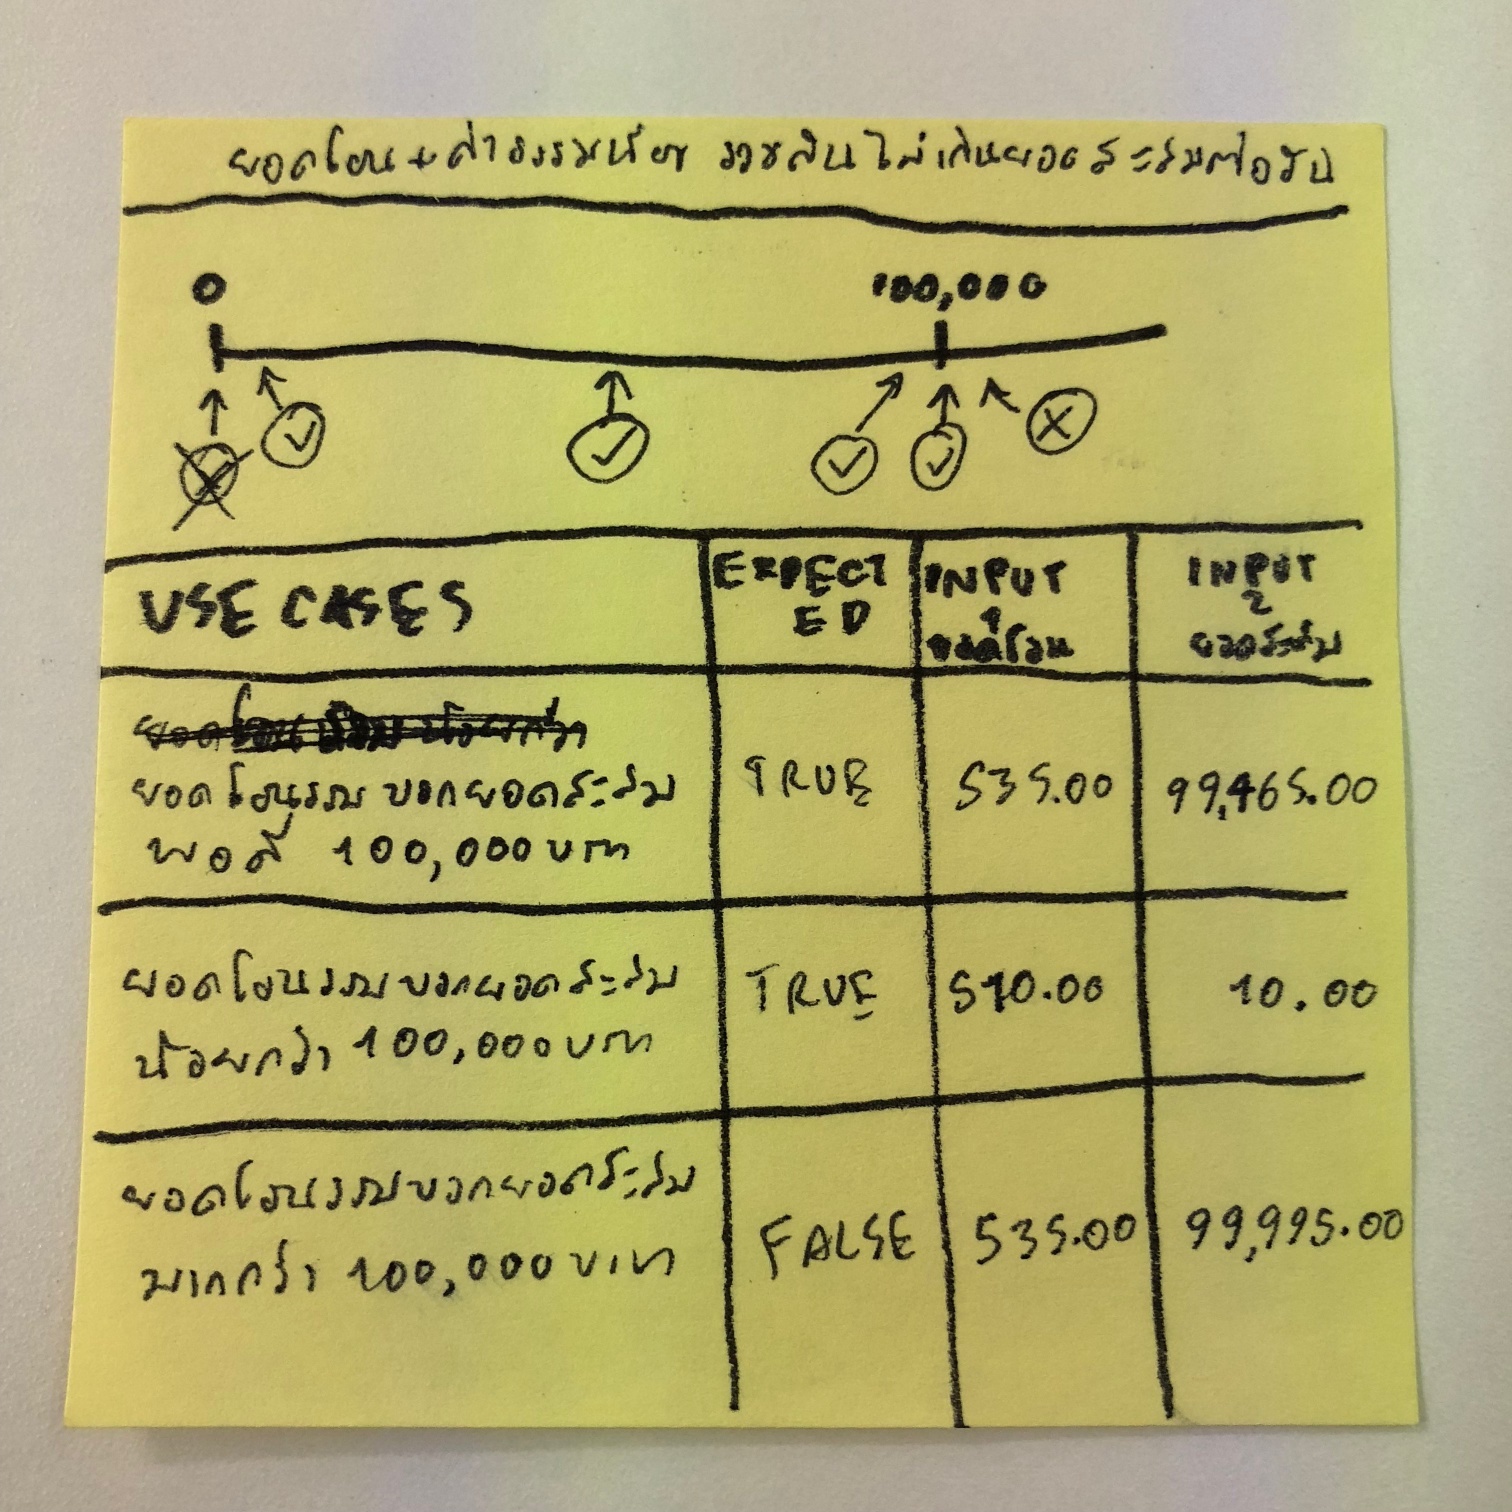 ยอดโอน + ค่าธรรมเนียม รวมสิ้น ไม่เกินยอดสะสมต่อวัน
0 100,000
USE CASES EXPECTED INPUT 1 ยอดโอน INPUT 2 ยอดสะสม
ยอดโอนรวมบวกยอดสะสม
พอดี 100,000 บาท
TRUE 535.00 99,465.00
ยอดโอนรวมบวกยอดสะสม
น้อยกว่า 100,000 บาท
TRUE 510.00 10.00
ยอดโอนรวมบวกยอดสะสม
มากกว่า 100,000 บาท
FALSE 535.00 99,995.00